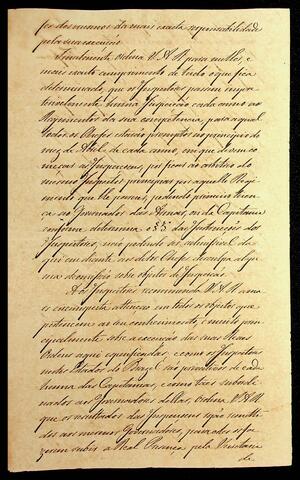 por dos mesmos da mais exacta responsabilidade
pela sua execução.
Finalmente, Ordena V. A. R. para melhor, e
mais exacto cumprimento de tudo o que fica
determinado, que os Inspectores passem impre
terivelmente huma Inspecção cada anno aos
Regimentos da sua competencia, para a qual
todos os Chefes estarão promptos no principio do
mez de Abril de cada anno, em que devem co
meçar as Inspecções, por ficar ao arbitrio do
mesmo Inspector principiar por aquelle Regi
mento que lhe parecer, pedindo primeiro licen
ça ao Governador das Armas, ou da Capitania
conforme determina o § 5º das Instrucções dos
Inspectores; não podendo ser admissivel da
qui em diante aos ditos Chefes desculpa algu
ma de omissão sobre objectos de Inspecção.
Aos Inspectores recommenda V. A. R. a ma
is circunspecta attenção em todos os objectos que
pertencem ao seu conhecimento, e muito prin
cipalmente sobre a execução das suas Reaes
Ordens aqui especificadas; e como os Inspectores
nestes Estados do Brazil são privativos de cada
huma das Capitanias, e como taes subordi
nados aos Governadores dellas, Ordena V. A. R.
que os resultados das Inspecções sejão remetti
dos aos mesmos Governadores, para elles os fa
zerem subir á Real Presença pela Secretaria
de